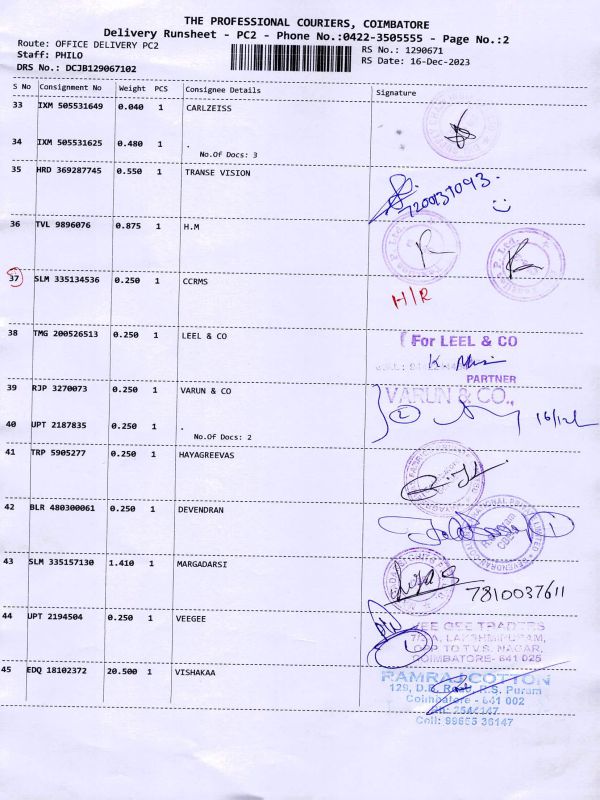 THE PROFESSIONAL COURIERS, COIMBATORE
Delivery Runsheet - PC2 - Phone No.:0422-3505555 - Page No.:2
Route: OFFICE DELIVERY PC2
RS No.: 1290671
Staff: PHILO
RS Date: 16-Dec-2023
DRS No.: DCJB129067102
S No Consignment No Weight PCS Consignee Details Signature
33 IXM 505531649 0.040 1 CARLZEISS
34 IXM 505531625 0.480 1 .
No.Of Docs: 3
35 HRD 369287745 0.550 1 TRANSE VISION
7200131093.
36 TVL 9896076 0.875 1 H.M
37 SLM 335134536 0.250 1 CCRMS
H/R
38 TMG 200526513 0.250 1 LEEL & CO
For LEEL & CO
PARTNER
39 RJP 3270073 0.250 1 VARUN & CO
VARUN & CO.,
2 16/12
40 UPT 2187835 0.250 1 .
No.Of Docs: 2
41 TRP 5905277 0.250 1 HAYAGREEVAS
42 BLR 480300061 0.250 1 DEVENDRAN
43 SLM 335157130 1.410 1 MARGADARSI
7810037611
44 UPT 2194504 0.250 1 VEEGEE
VEE GEE TRADERS
LAKSHMIPURAM,
OPP. TO T.V.S. NAGAR,
COIMBATORE- 641 025
45 EDQ 18102372 20.500 1 VISHAKAA
RAMRAJ COTTON
129, D.B. Road, R.S. Puram
Coimbatore - 641 002
Ph: 2544147
Cell: 99655 36147